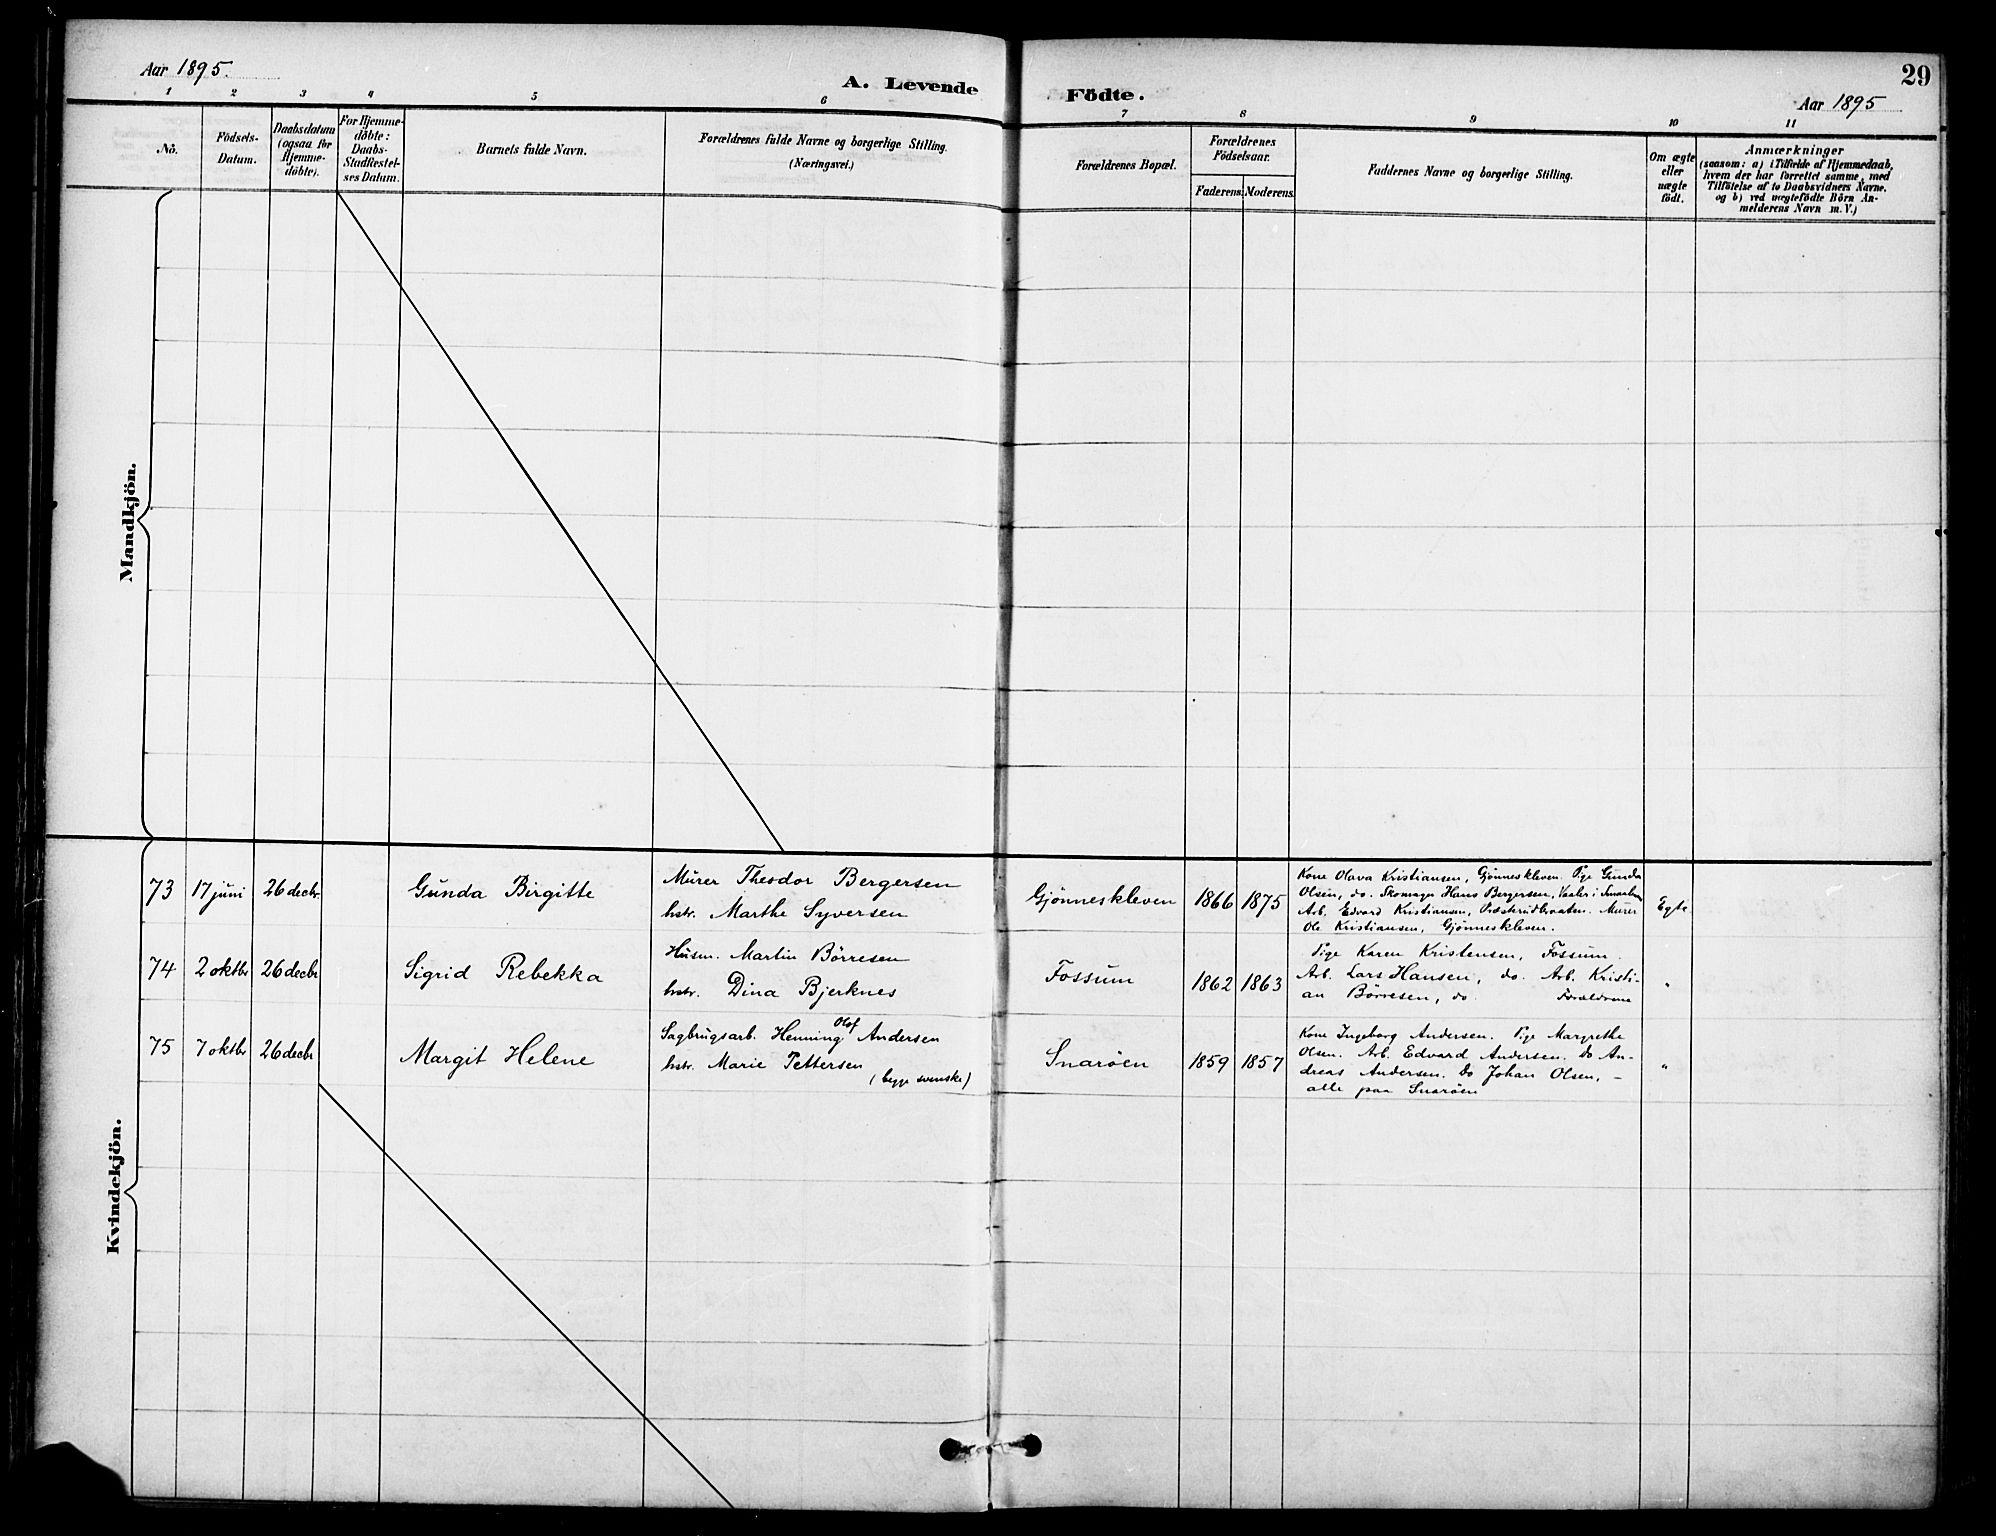 Aar 1895.
A. Levende
Födte.
29
Aar 1895
1 2 3 4 5 6 7 8 9 10 11
No.
Födsels-
Datum.
Daabsdatum
(ogsaa for
Hjemme-
döbte).
For Hjemme-
döbte:
Daabs-
Stadfæstel-
ses Datum.
Barnets fulde Navn.
Forældrenes fulde Navne og borgerlige Stilling.
(Næringsvei.)
Forældrenes Bopæl.
Forældrenes
Födselsaar.
Faderens.
Moderens.
Faddernes Navne og borgerlige Stilling.
Om ægte
eller
uægte
födt.
Anmærkninger
(saasom: a) i Tilfælde af Hjemmedaab,
hvem der har forrettet samme, med
Tilföielse af to Daabsvidners Navne.
og b) ved uægtefödte Börn An-
melderens Navn m. V.)
Mandkjön.
Kvindekjön.
73 17 juni 26 decbr. Gunda Birgitte
Murer Theodor Bergersen
hstr. Marthe Syversen
Gjönneskleven 1866 1875
Kone Olava Kristiansen, Gjönneskleven. Pige Gunda
Olsen, do. Skomager Hans Bergersen, Vaaler i Smaalen
Arb. Edvard Kristiansen, Murer
Ole Kristiansen, Gjönneskleven.
Egte
74 2 oktbr 26 decbr Sigrid Rebekka
Husm. Martin Börresen
hstr. Dina Bjerknes
Fossum 1862 1863
Pige Karen Kristensen, Fossum.
Arb. Lars Hansen, do. Arb. Kristi-
an Börresen, do. Forældrene
"
75 7 oktbr 26 decbr Margit Helene
Sagbrugsarb. Henning Olof Andersen
hstr. Marie Pettersen
(begge svenske)
Snaröen 1859 1857
Kone Ingeborg Andersen. Pige Margrethe
Olsen. Arb. Edvard Andersen. Do An-
dreas Andersen. Do Johan Olsen, -
alle paa Snaröen
"